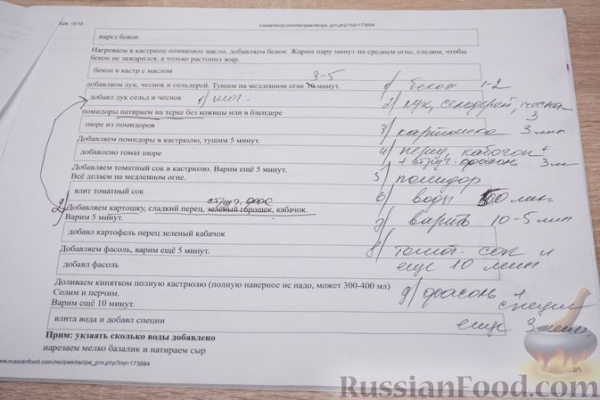 russianfood.com/recipes/recipe_prn.php?rid=173894
нарез бекон
Нагреваем в кастрюле оливковое масло, добавляем бекон. Жарим пару минут на среднем огне, следим, чтобы
бекон не зажарился, а только растопил жир.
бекон в кастр с маслом
3-5
добавляем лук, чеснок и сельдерей. Тушим на медленном огне 10 минут.
добавл лук сельд и чеснок
помидоры натираем на терке без кожицы или в блендере
пюре из помидоров
Добавляем помидоры в кастрюлю, тушим 5 минут.
добавлено томат пюре
Добавляем томатный сок в кастрюлю. Варим ещё 5 минут.
Всё делаем на медленном огне.
влит томатный сок
Добавляем картошку, сладкий перец, зелёный горошек, кабачок.
Варим 5 минут.
добавл картофель перец зеленый кабачок
Добавляем фасоль, варим ещё 5 минут.
добавл фасоль
Доливаем кипятком полную кастрюлю (полную наверное не надо, может 300-400 мл)
Солим и перчим.
Варим ещё 10 минут.
влита вода и добавл специи
Прим: укзвать сколько воды добавлено
нарезаем мелко базалик и натираем сыр
www.russianfood.com/recipes/recipe_prn.php?rid=173894
1) бекон 1-2
2) лук, сельдерей, чеснок
3
3) картошка 3 мин
4) перец, кабачок +
+ фасоль 3 м
5) помидор
6) воды
7) варить 10-5 мин
8) томат. сок и
еще 10 мин
9) фасоль +
специи
еще 3 мин.
RussianFood.com